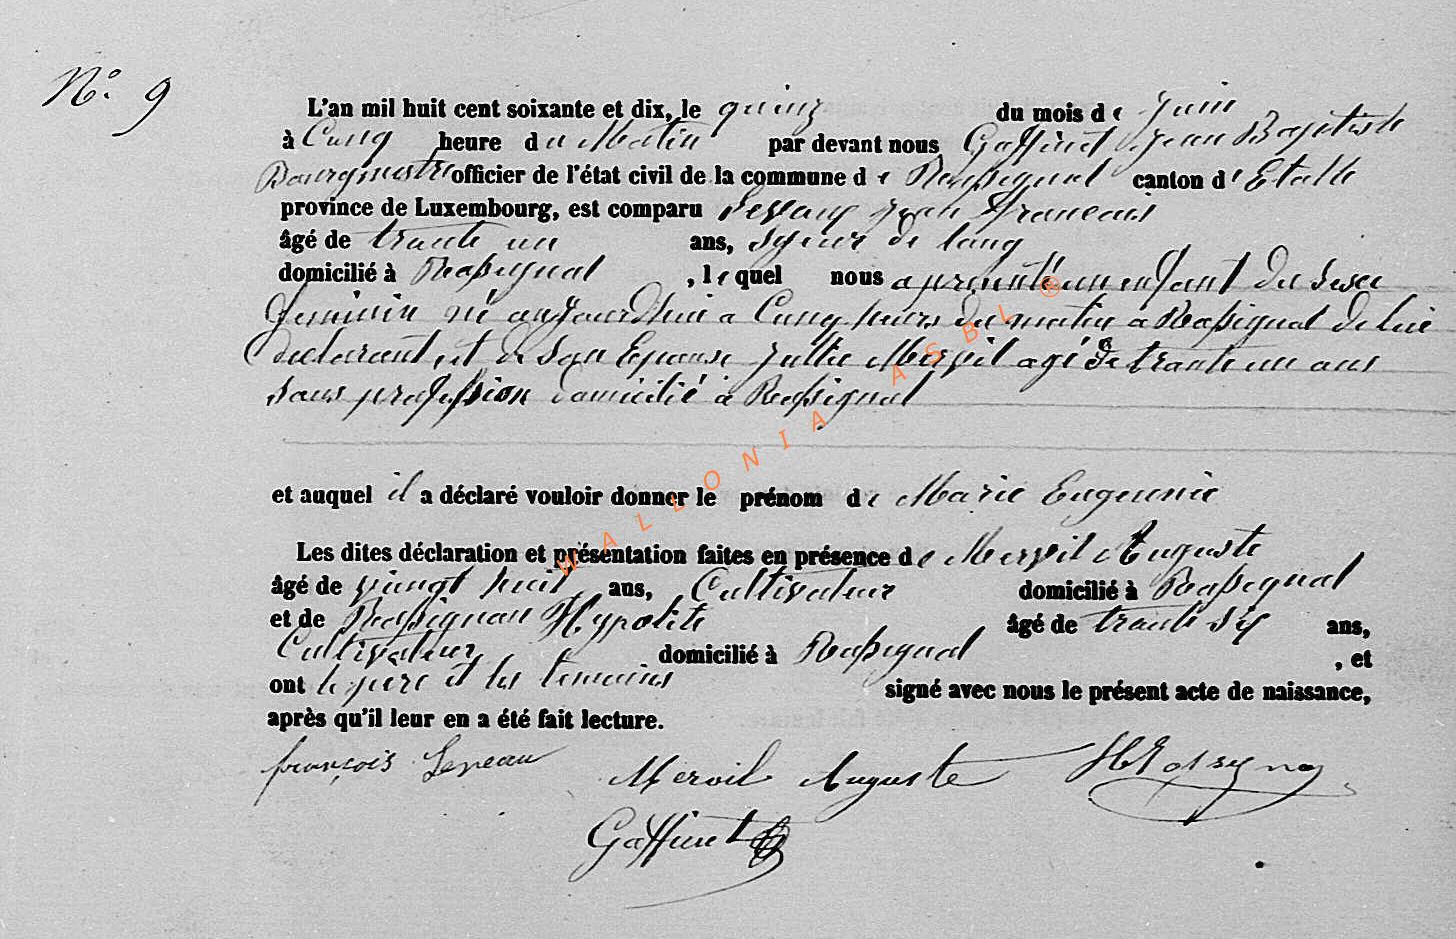 N° 9
L'an mil huit cent soixante et dix, le quinz du mois de Juin
à Cunq heure du Matin par devant nous Gaffinet Jean Baptiste
Bourgmestre officier de l'état civil de la commune de Rossignol canton d' Etalle
province de Luxembourg, est comparu Jean Francois
âgé de trante un ans, syeur de long
domicilié à Rossignol, lequel nous a presenté un enfant du sexe
feminin né aujourdhui a Cunq heurs du matin a Rossignol de lui
declarant et de son Epouse Jullie Mervil agé de trante un ans
sans profession domicilié à Rossignol
et auquel il a déclaré vouloir donner le prénom de Marie Eugeunie
Les dites déclaration et présentation faites en présence de Mervil Auguste
âgé de vingt huit ans, Cultivateur domicilié à Rossignol
et de Rossignon Hypolite âgé de trante six ans,
Cultivateur domicilié à Rossignol, et
ont le pere et les temoins signé avec nous le présent acte de naissance,
après qu'il leur en a été fait lecture.
françois
Meroil Auguste
Gaffinet
WALLONIA ASBL ®